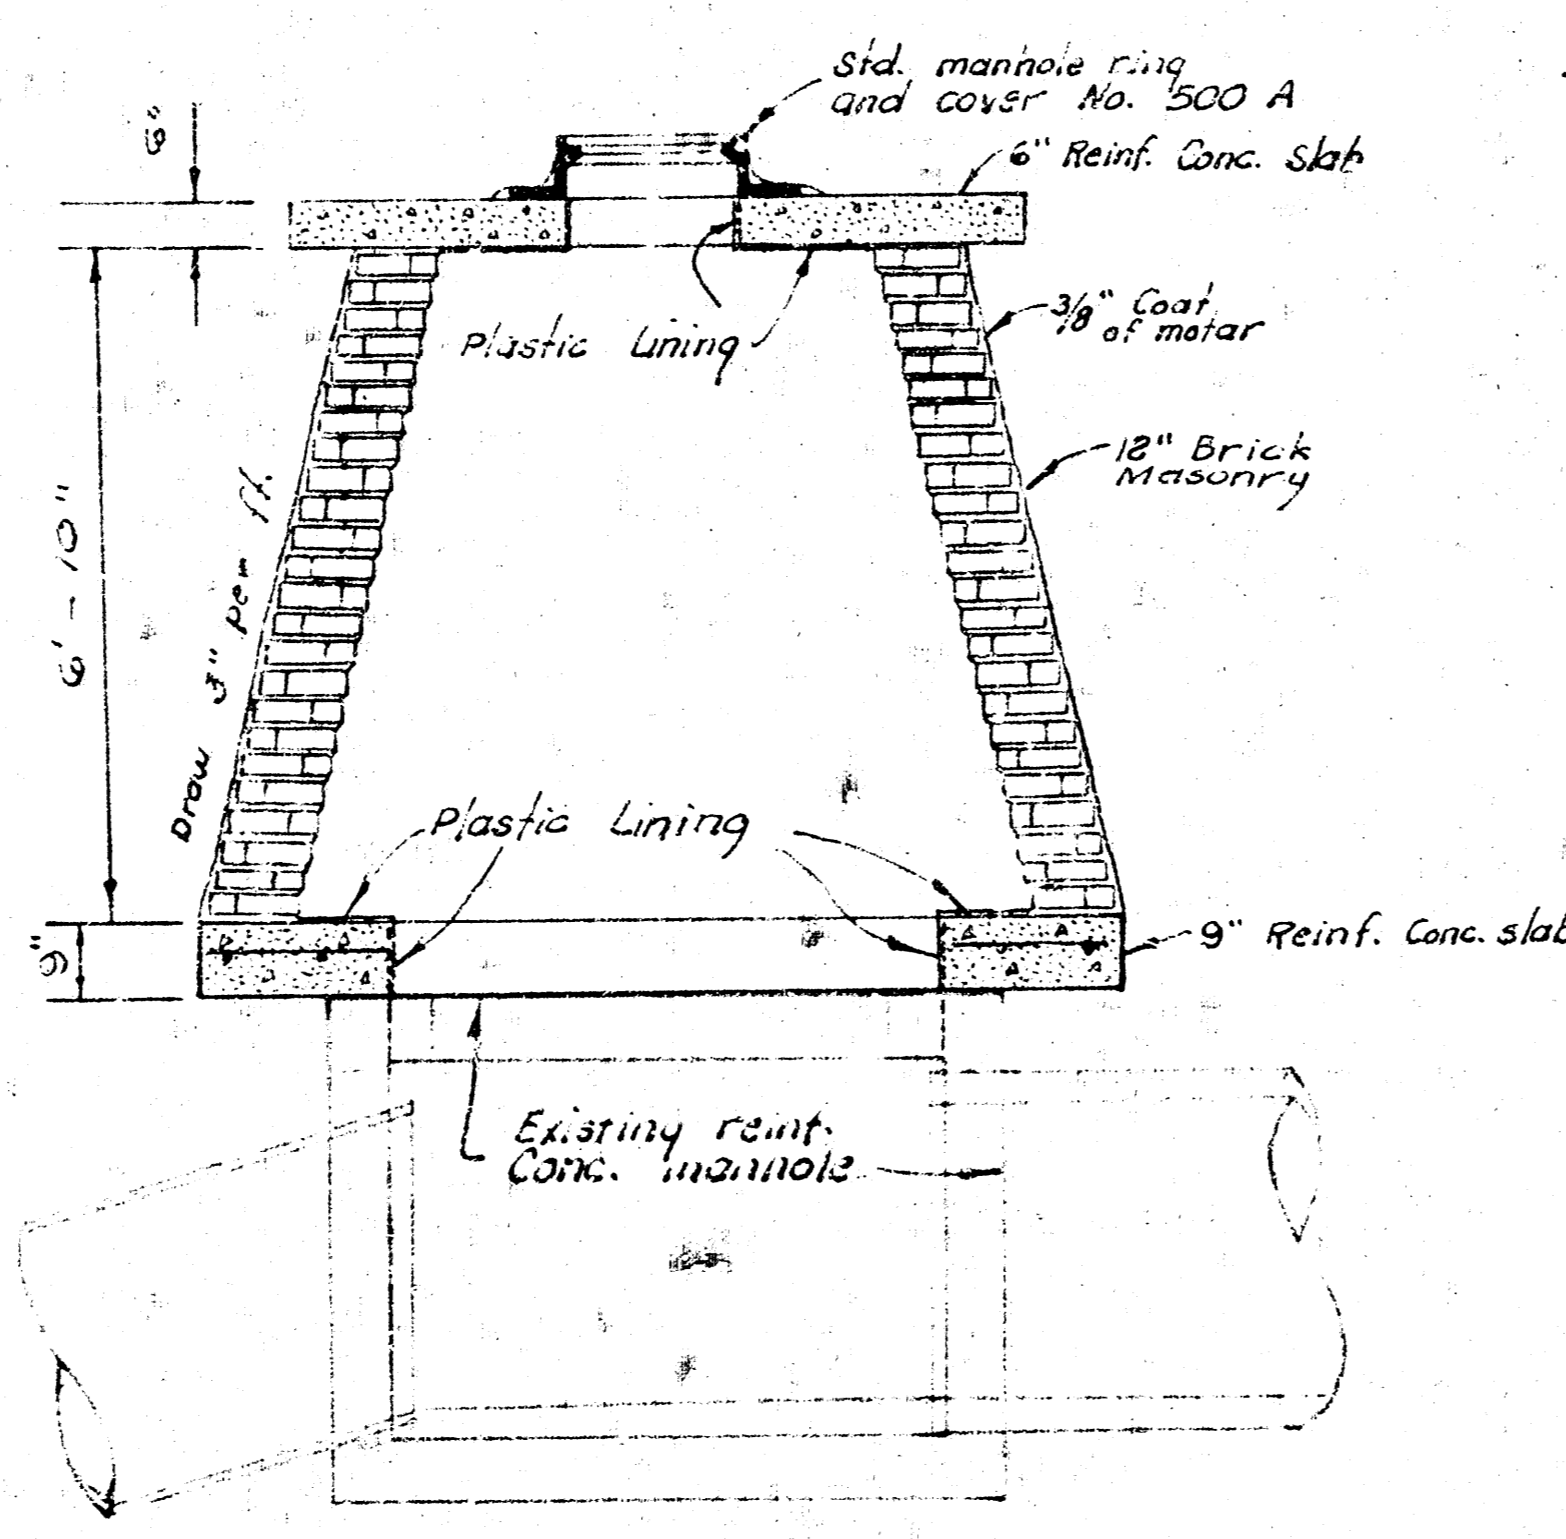 Std. manhole ring
and cover No. 500 A
6"
6" Reinf. Conc. Slab
3/8" Coat
of motar
Plastic Lining
12" Brick
Masonry
6' - 10"
Draw 3" per ft.
Plastic Lining
9"
9" Reinf. Conc. slab
Existing reinf.
Conc. manhole